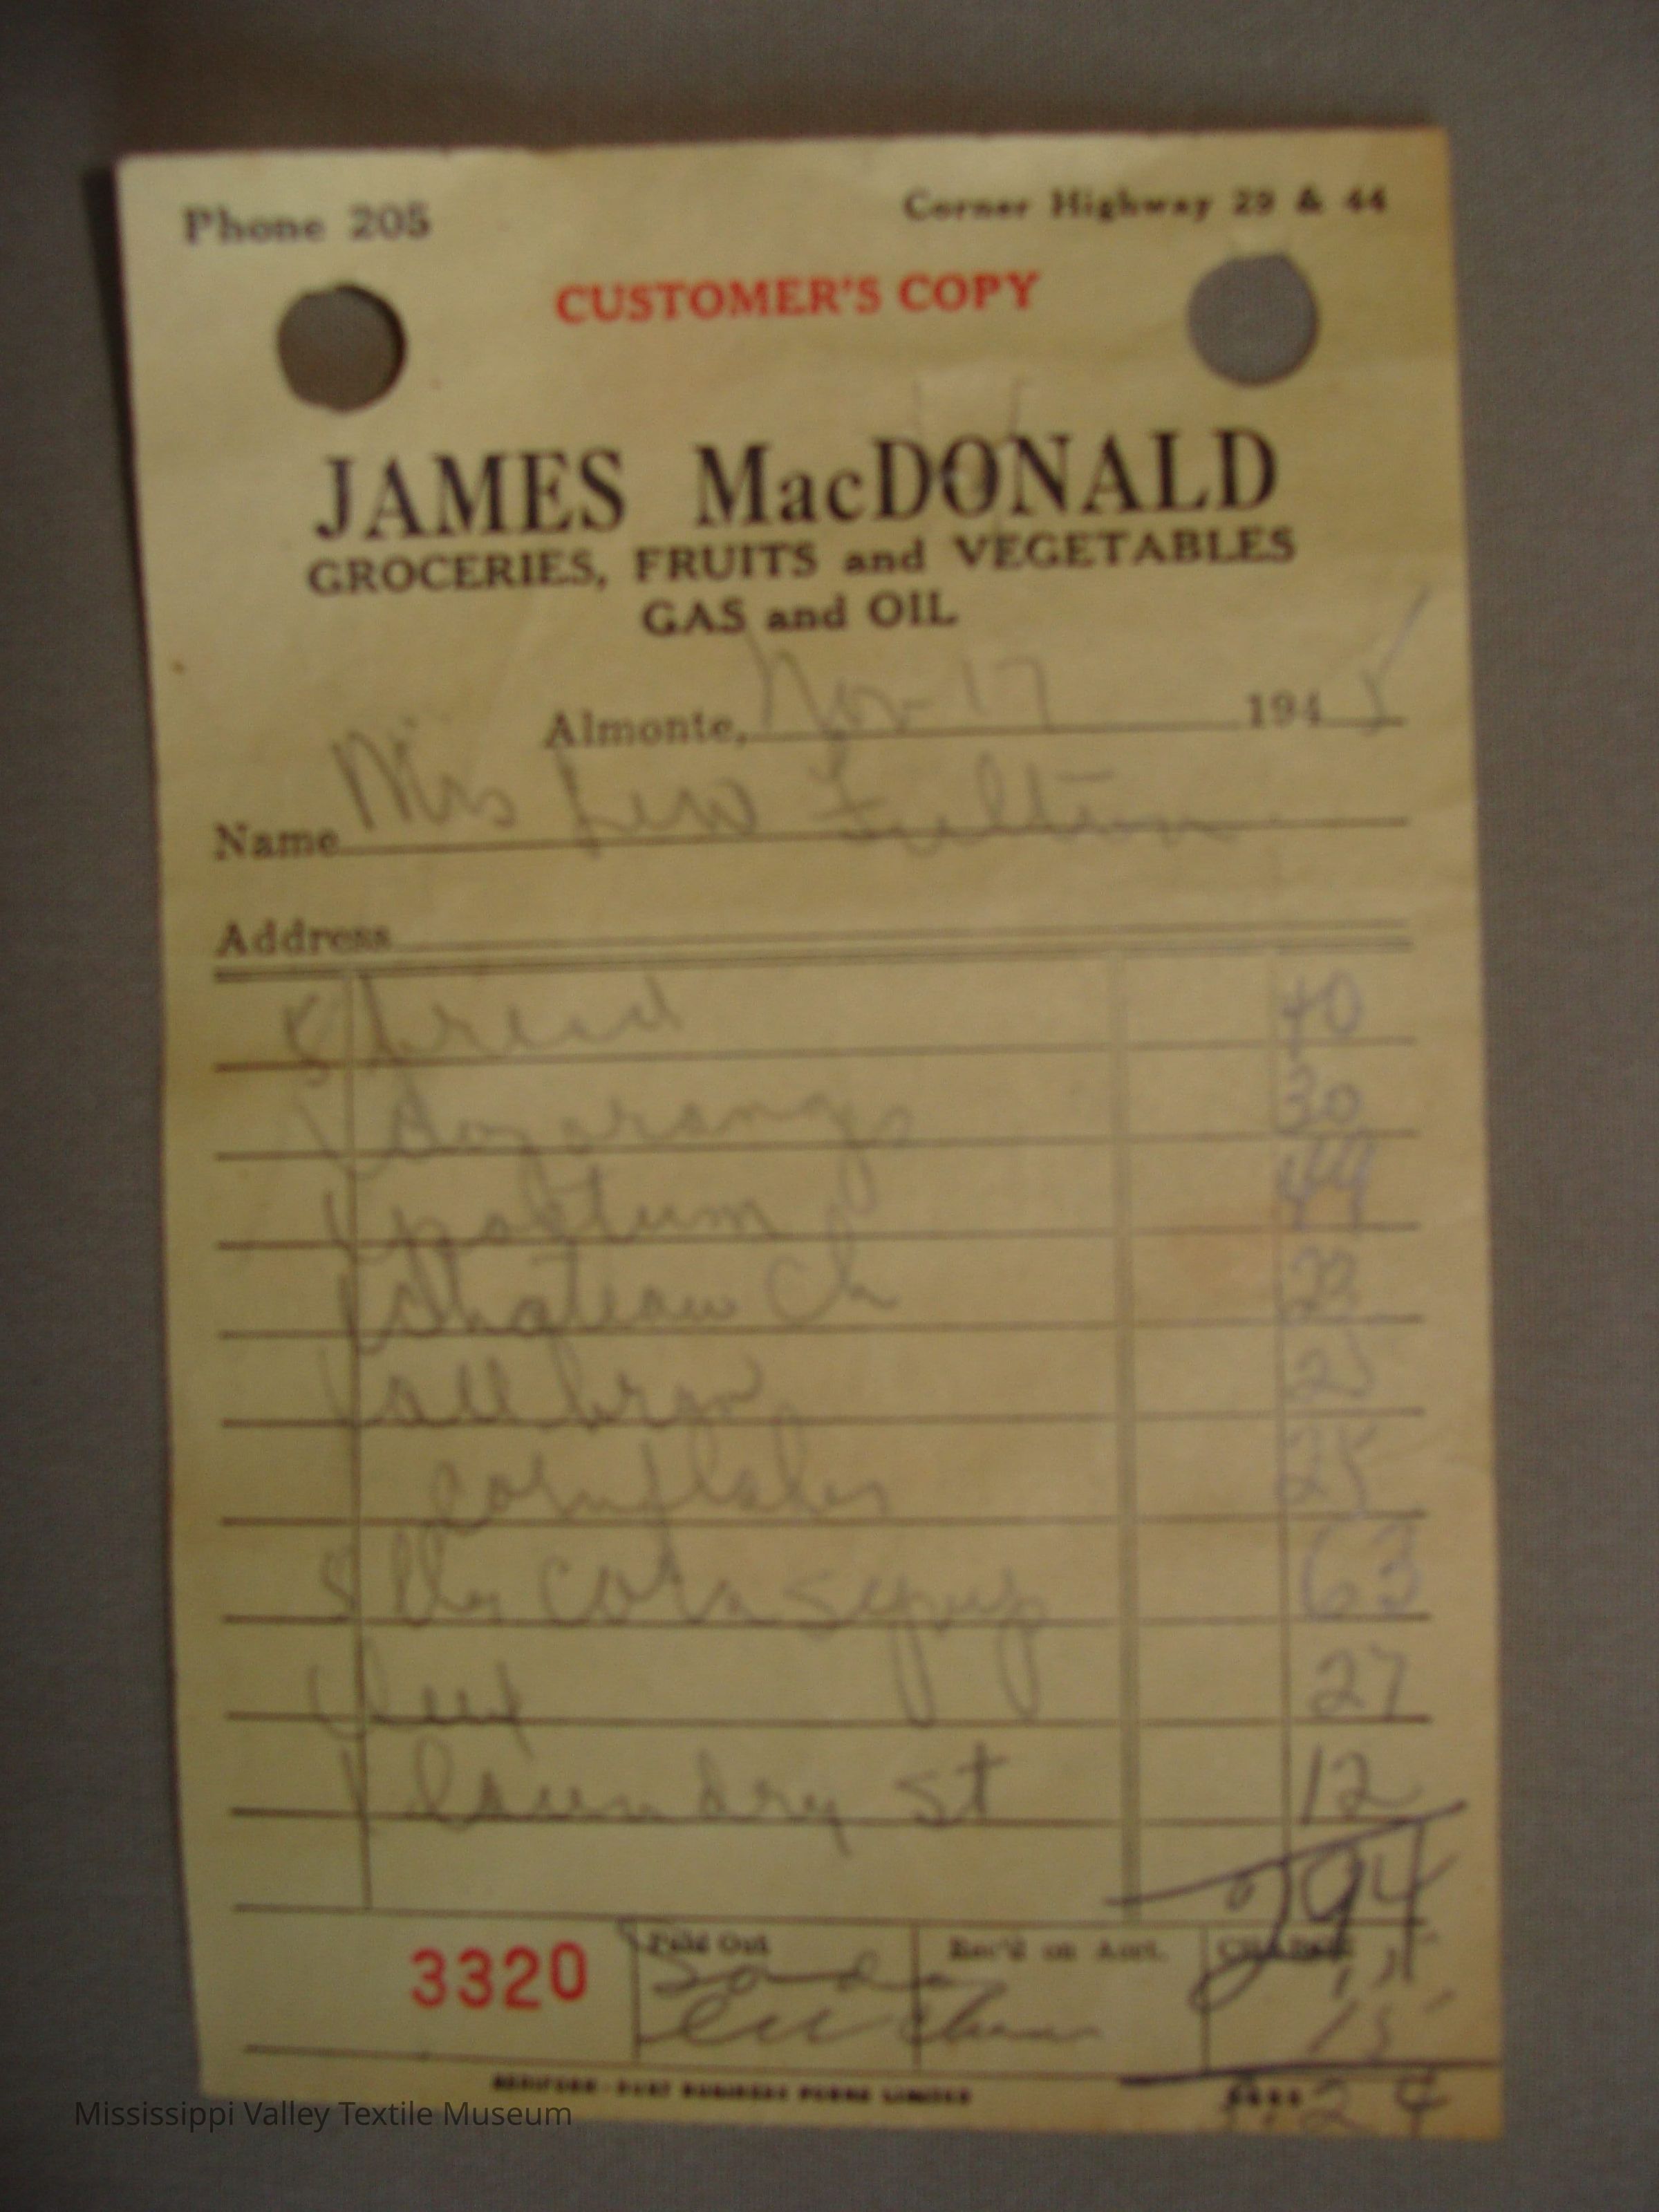 Phone 205 Corner Highway 29 & 44
CUSTOMER'S COPY
JAMES MacDONALD
GROCERIES, FRUITS and VEGETABLES
GAS and OIL
Almonte, Nov 17 1945
Name Mrs Lew Fulton
Address
bread 40
1 doz orangs 30
1 postum 49
1 Chateau Ch 23
1 all bran 25
cornflakes 25
5 lbs corn syrup 63
1 lux 27
1 laundry st 12
2 94
3320 Paid Out Rec'd on Acct. CHARGE
Soda 15
15
3.24
BUSINESS FORMS LIMITED
Mississippi Valley Textile Museum